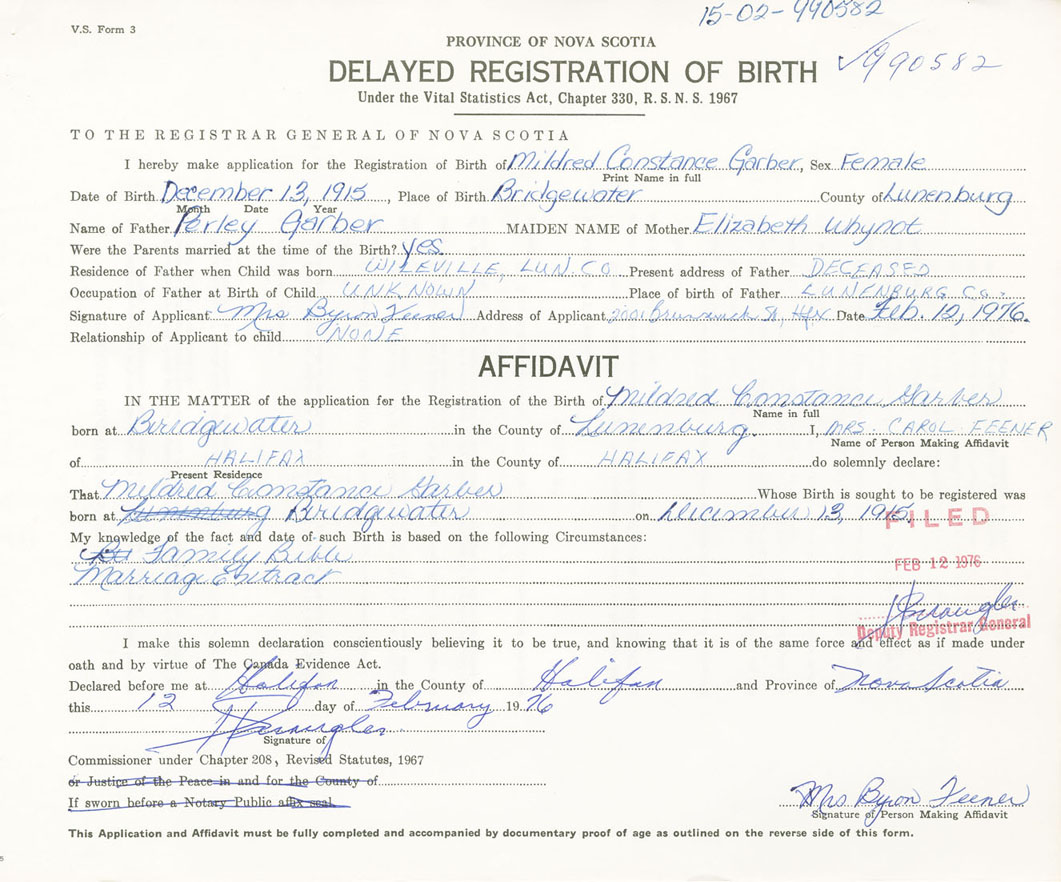 15-02-990582
V.S. Form 3
PROVINCE OF NOVA SCOTIA
✓990582
DELAYED REGISTRATION OF BIRTH
Under the Vital Statistics Act, Chapter 330, R.S.N.S. 1967
TO THE REGISTRAR GENERAL OF NOVA SCOTIA
I hereby make application for the Registration of Birth of Mildred Constance Garber, Sex Female
Print Name in full
Date of Birth December 13, 1915, Place of Birth Bridgewater County of Lunenburg
Month Date Year
Name of Father Perley Garber MAIDEN NAME of Mother Elizabeth Whynot
Were the Parents married at the time of the Birth? Yes.
Residence of Father when Child was born WILEVILLE, LUN. CO Present address of Father DECEASED
Occupation of Father at Birth of Child UNKNOWN Place of birth of Father LUNENBURG Co.
Signature of Applicant Mrs Byron Feener Address of Applicant 2001 Brunswick St, Hfx Date Feb. 12, 1976.
Relationship of Applicant to child NONE
AFFIDAVIT
IN THE MATTER of the application for the Registration of the Birth of Mildred Constance Garber
Name in full
born at Bridgewater in the County of Lunenburg. I, MRS. CAROL FEENER
Name of Person Making Affidavit
of HALIFAX in the County of HALIFAX do solemnly declare:
Present Residence
That Mildred Constance Garber Whose Birth is sought to be registered was
born at Lunenburg Bridgewater on December 13, 1915.
FILED
My knowledge of the fact and date of such Birth is based on the following Circumstances:
Family Bible
FEB 12 1976
Marriage Extract
Deputy Registrar General
I make this solemn declaration conscientiously believing it to be true, and knowing that it is of the same force and effect as if made under
oath and by virtue of The Canada Evidence Act.
Declared before me at Halifax in the County of Halifax and Province of Nova Scotia
this 12 day of February 1976
Signature of
Commissioner under Chapter 208, Revised Statutes, 1967
or Justice of the Peace in and for the County of
If sworn before a Notary Public affix seal
Mrs Byron Feener
Signature of Person Making Affidavit
This Application and Affidavit must be fully completed and accompanied by documentary proof of age as outlined on the reverse side of this form.